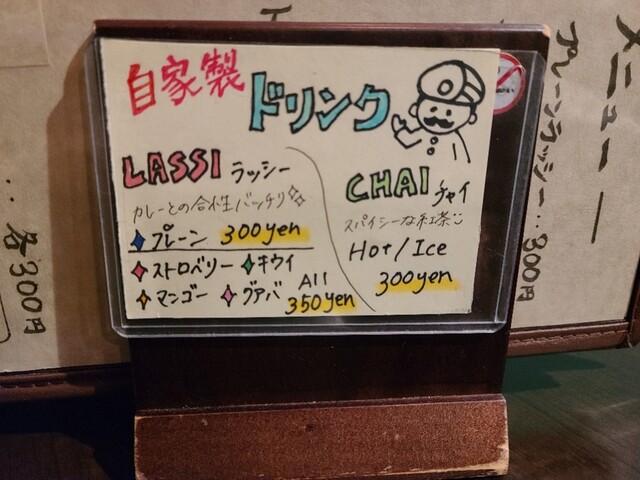 自家製
ドリンク
LASSI ラッシー
カレーとの相性バッチリ
プレーン 300yen
ストロベリー キウイ
マンゴー グァバ All 350yen
CHAI チャイ
スパイシーな紅茶
Hot/Ice
300yen
メニュー
プレーンラッシー…300円
…各300円